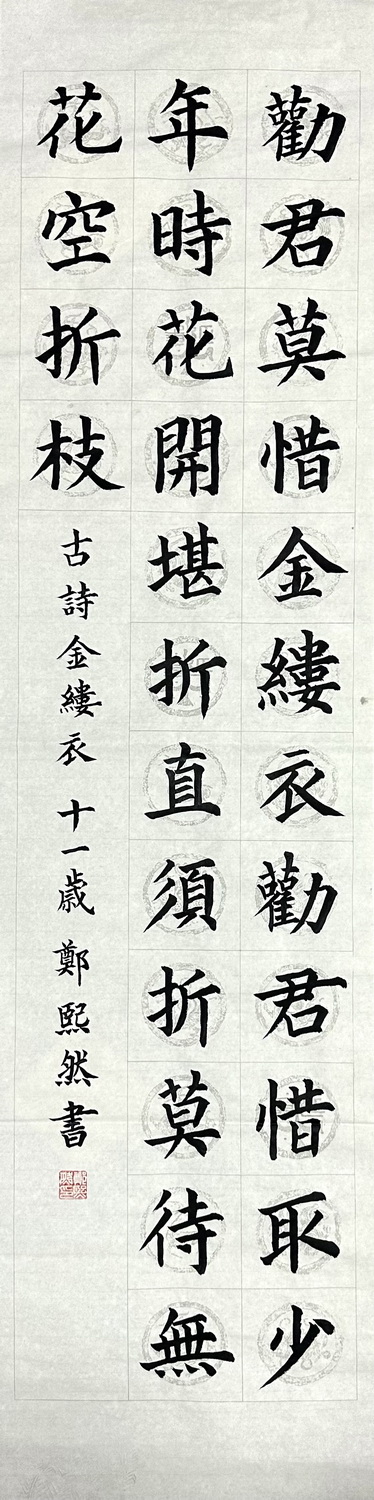 勸君莫惜金縷衣勸君惜取少
年時花開堪折直須折莫待無
花空折枝
古詩金縷衣 十一歲 鄭熙然書